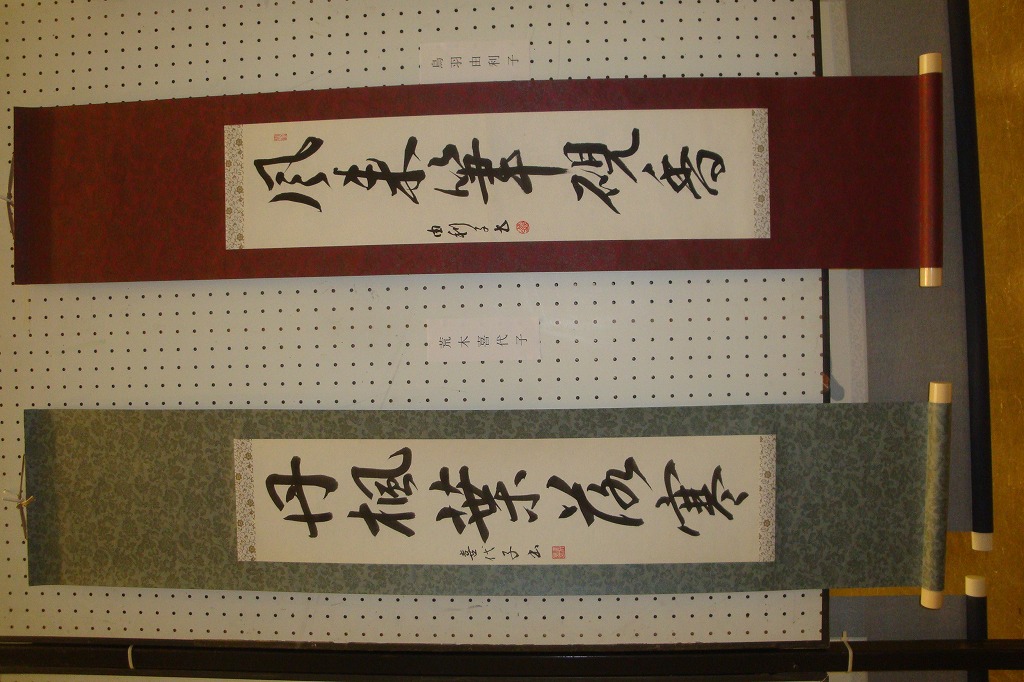 鳥羽由利子
風来筆硯香
由利子書
荒木喜代子
丹楓葉落寒
喜代子書